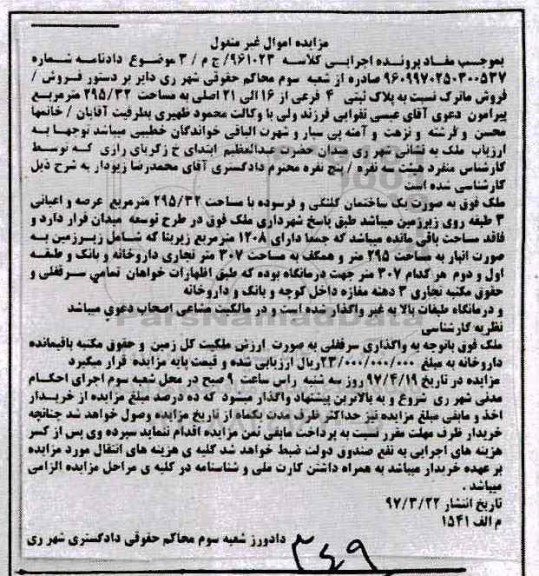 مزایده اموال غیر منقول
بموجب مفاد پرونده اجرایی کلاسه ۹۶۱۰۲۳/ ج م / ۳ موضوع دادنامه شماره
۹۶۰۹۹۷۰۲۵۰۳۰۰۵۳۷ صادره از شعبه سوم محاکم حقوقی شهر ری دایر بر دستور فروش /
فروش ماترک نسبت به پلاک ثبتی ۴ فرعی از ۱۶ الی ۲۱ اصلی به مساحت ۲۹۵/۳۲ مترمربع
پیرامون دعوی آقای عیسی تقوایی فرزند ولی با وکالت محمود ظهیری بطرفیت آقایان / خانمها
محسن و فرشته و نزهت و آمنه پی سیار و شهرت الباقی خواندگان خطیبی میباشد توجهاً به
ارزیاب ملک به نشانی شهر ری میدان حضرت عبدالعظیم ابتدای خ زکریای رازی که توسط
کارشناس منفرد هیئت سه نفره / پنج نفره محترم دادگستری آقای محمدرضا زیودار به شرح ذیل
کارشناسی شده است
ملک فوق به صورت یک ساختمان کلنگی و فرسوده با مساحت ۲۹۵/۳۲ مترمربع عرصه و اعیانی
۳ طبقه روی زیرزمین میباشد طبق پاسخ شهرداری ملک فوق در طرح توسعه میدان قرار دارد و
فاقد مساحت باقی مانده میباشد که جمعا دارای ۱۲۰۸ مترمربع زیربنا که شامل زیرزمین به
صورت انبار به مساحت ۲۹۵ متر و همکف به مساحت ۳۰۷ متر تجاری داروخانه و بانک و طبقه
اول و دوم هر کدام ۳۰۷ متر جهت درمانگاه بوده که طبق اظهارات خواهان تمامی سرقفلی و
حقوق مکتبه تجاری ۳ دهنه مغازه داخل کوچه و بانک و داروخانه
و درمانگاه طبقات بالا به غیر واگذار شده است و در مالکیت مشاعی اصحاب دعوی میباشد
نظریه کارشناسی
ملک فوق باتوجه به واگذاری سرقفلی به صورت ارزش ملکیت کل زمین و حقوق مکتبه باقیمانده
داروخانه به مبلغ ۲۳/۰۰۰/۰۰۰/۰۰۰ریال ارزیابی شده و قیمت پایه مزایده قرار میگیرد
مزایده در تاریخ ۹۷/۴/۱۹ روز سه شنبه راس ساعت ۹ صبح در محل شعبه سوم اجرای احکام
مدنی شهر ری شروع و به بالاترین پیشنهاد واگذار میشود که ده درصد مبلغ مزایده از خریدار
اخذ و مابقی مبلغ مزایده نیز حداکثر ظرف مدت یکماه از تاریخ مزایده وصول خواهد شد چنانچه
خریدار ظرف مهلت مقرر نسبت به پرداخت مابقی ثمن مزایده اقدام ننماید سپرده وی پس از کسر
هزینه های اجرایی به نفع صندوق دولت ضبط خواهد شد کلیه ی هزینه های انتقال مورد مزایده
بر عهده خریدار میباشد به همراه داشتن کارت ملی و شناسنامه در کلیه ی مراحل مزایده الزامی
میباشد .
تاریخ انتشار ۹۷/۳/۲۲
م الف ۱۵۴۱
دادورز شعبه سوم محاکم حقوقی دادگستری شهر ری
۳۴۹